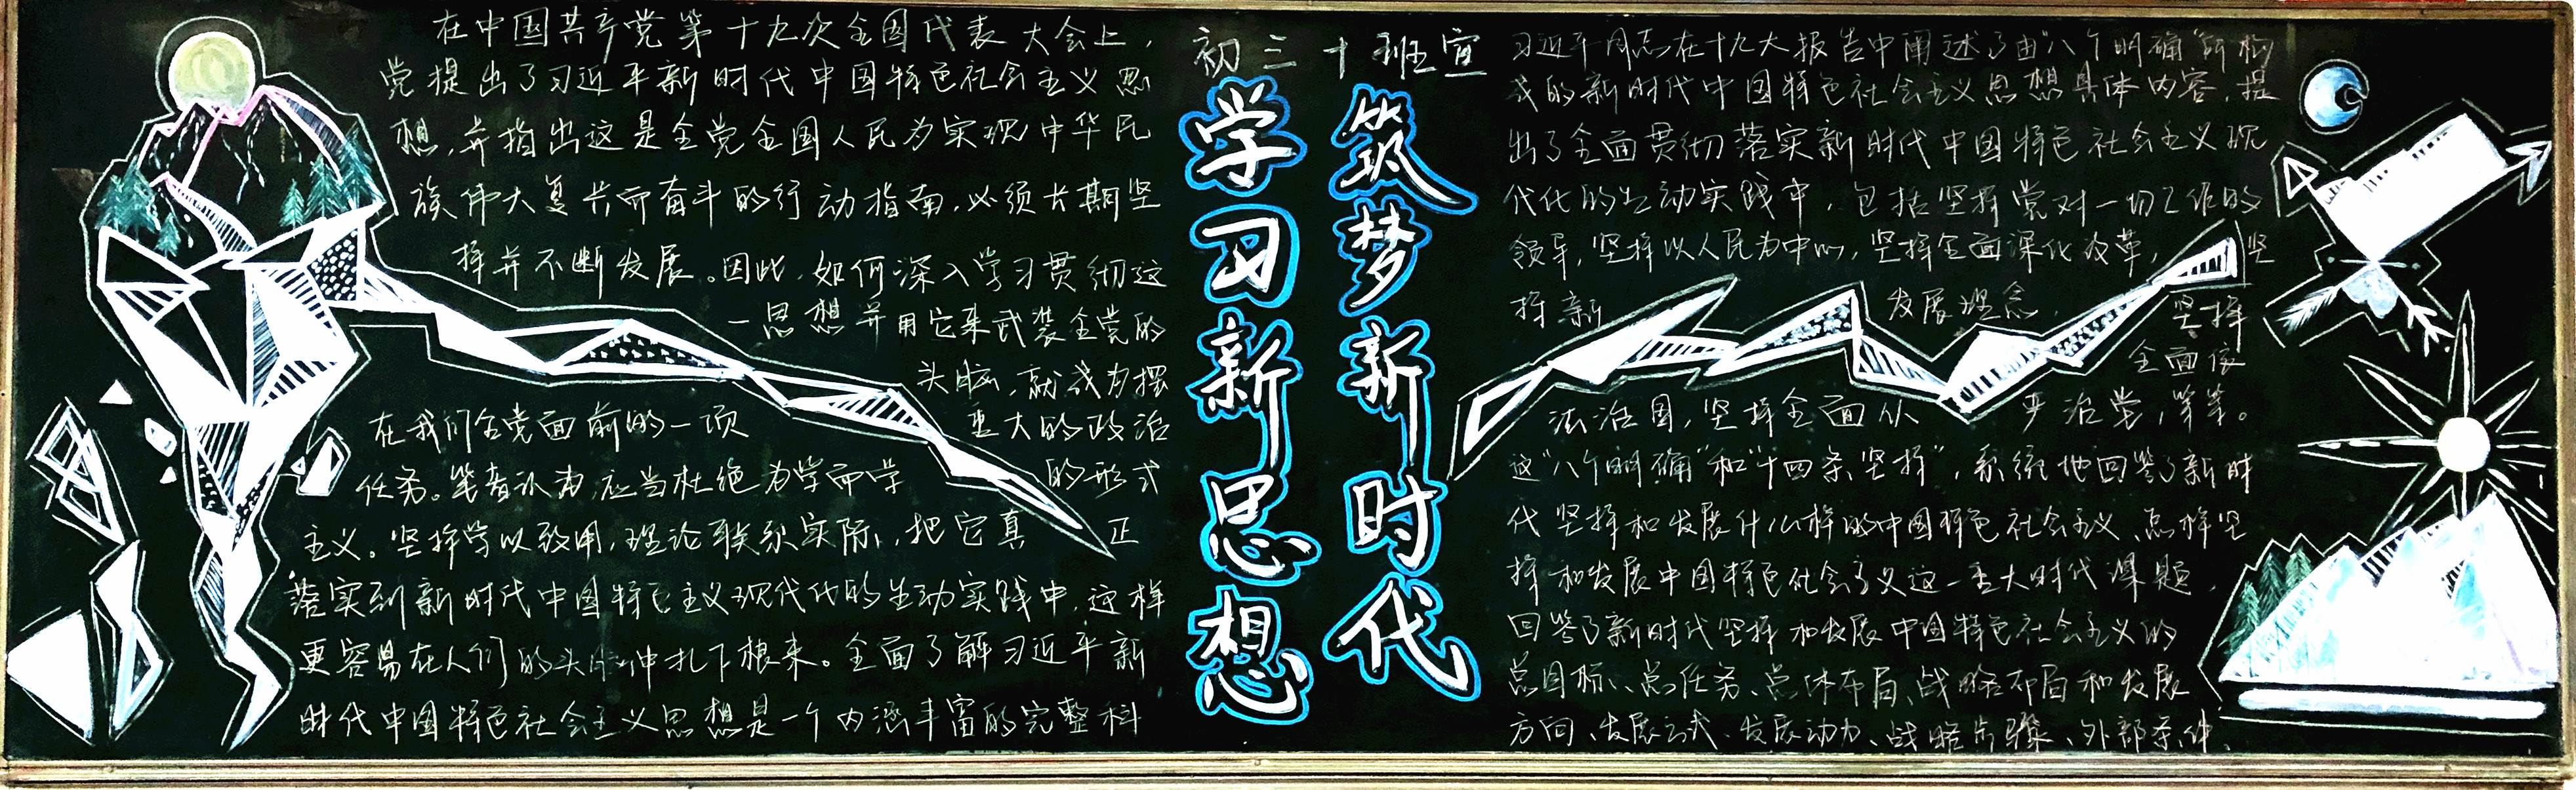 在中国共产党第十九次全国代表大会上，
党提出了习近平新时代中国特色社会主义思
想，并指出这是全党全国人民为实现中华民
族伟大复兴而奋斗的行动指南，必须长期坚
持并不断发展。因此，如何深入学习贯彻这
一思想并用它来武装全党的
头脑，就成为摆
在我们全党面前的一项 重大的政治
任务。笔者认为，应当杜绝为学而学 的形式
主义。坚持学以致用，理论联系实际，把它真 正
落实到新时代中国特色主义现代化的生动实践中，这样
更容易在人们的头脑中扎下根来。全面了解习近平新
时代中国特色社会主义思想是一个内涵丰富的完整科
初三十班宣
学习新思想
筑梦新时代
习近平同志在十九大报告中阐述了由“八个明确”所构
成的新时代中国特色社会主义思想具体内容，提
出了全面贯彻落实新时代中国特色社会主义现
代化的生动实践中，包括坚持党对一切工作的
领导，坚持以人民为中心，坚持全面深化改革， 坚
持新 发展理念， 坚持
全面依
法治国，坚持全面从 严治党，等等。
这“八个明确”和“十四条坚持”，系统地回答了新时
代坚持和发展什么样的中国特色社会主义、怎样坚
持和发展中国特色社会主义这一重大时代课题，
回答了新时代坚持和发展中国特色社会主义的
总目标、总任务、总体布局、战略布局和发展
方向、发展方式、发展动力、战略步骤、外部条件、